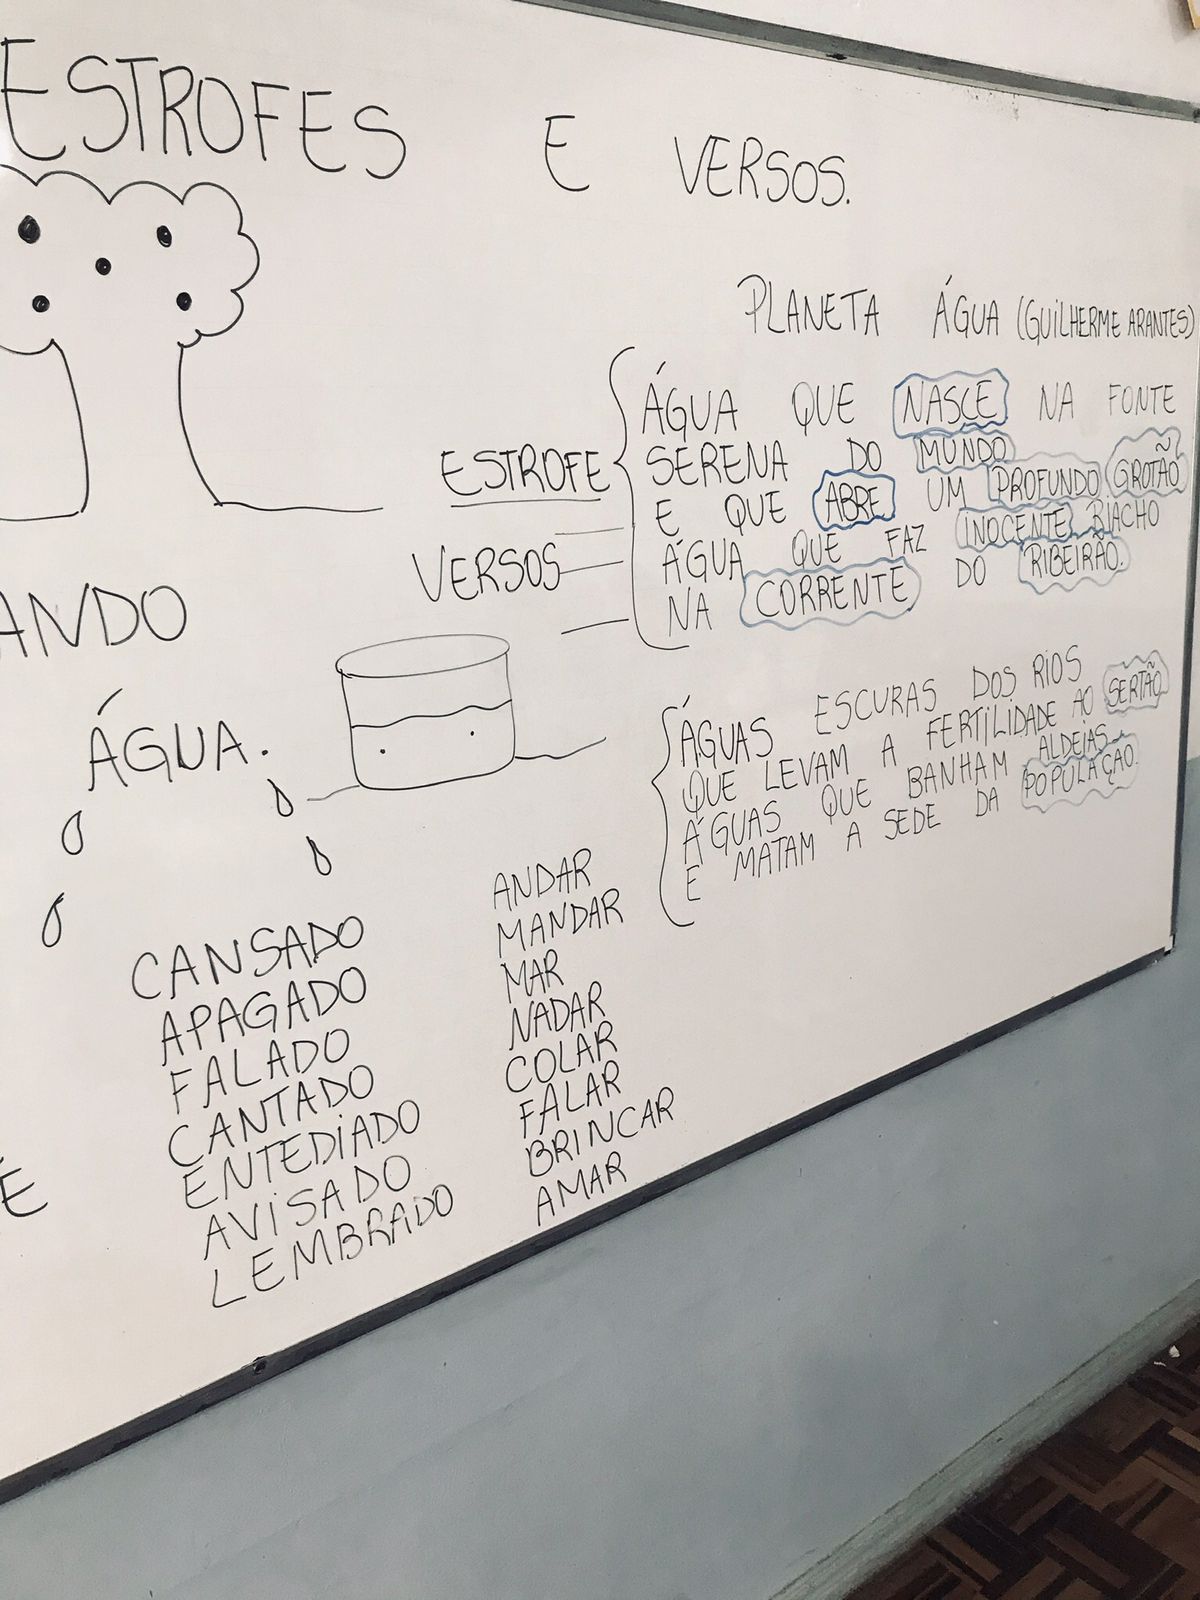 ESTROFES E VERSOS.
PLANETA ÁGUA (GUILHERME ARANTES)
ESTROFE
VERSOS
ÁGUA QUE NASCE NA FONTE
SERENA DO MUNDO
E QUE ABRE UM PROFUNDO GROTÃO
ÁGUA QUE FAZ INOCENTE RIACHO
NA CORRENTE DO RIBEIRÃO.
ÁGUAS ESCURAS DOS RIOS
QUE LEVAM A FERTILIDADE AO SERTÃO
ÁGUAS QUE BANHAM ALDEIAS
E MATAM A SEDE DA POPULAÇÃO.
ANDO
ÁGUA.
CANSADO
APAGADO
FALADO
CANTADO
ENTEDIADO
AVISADO
LEMBRADO
ANDAR
MANDAR
MAR
NADAR
COLAR
FALAR
BRINCAR
AMAR